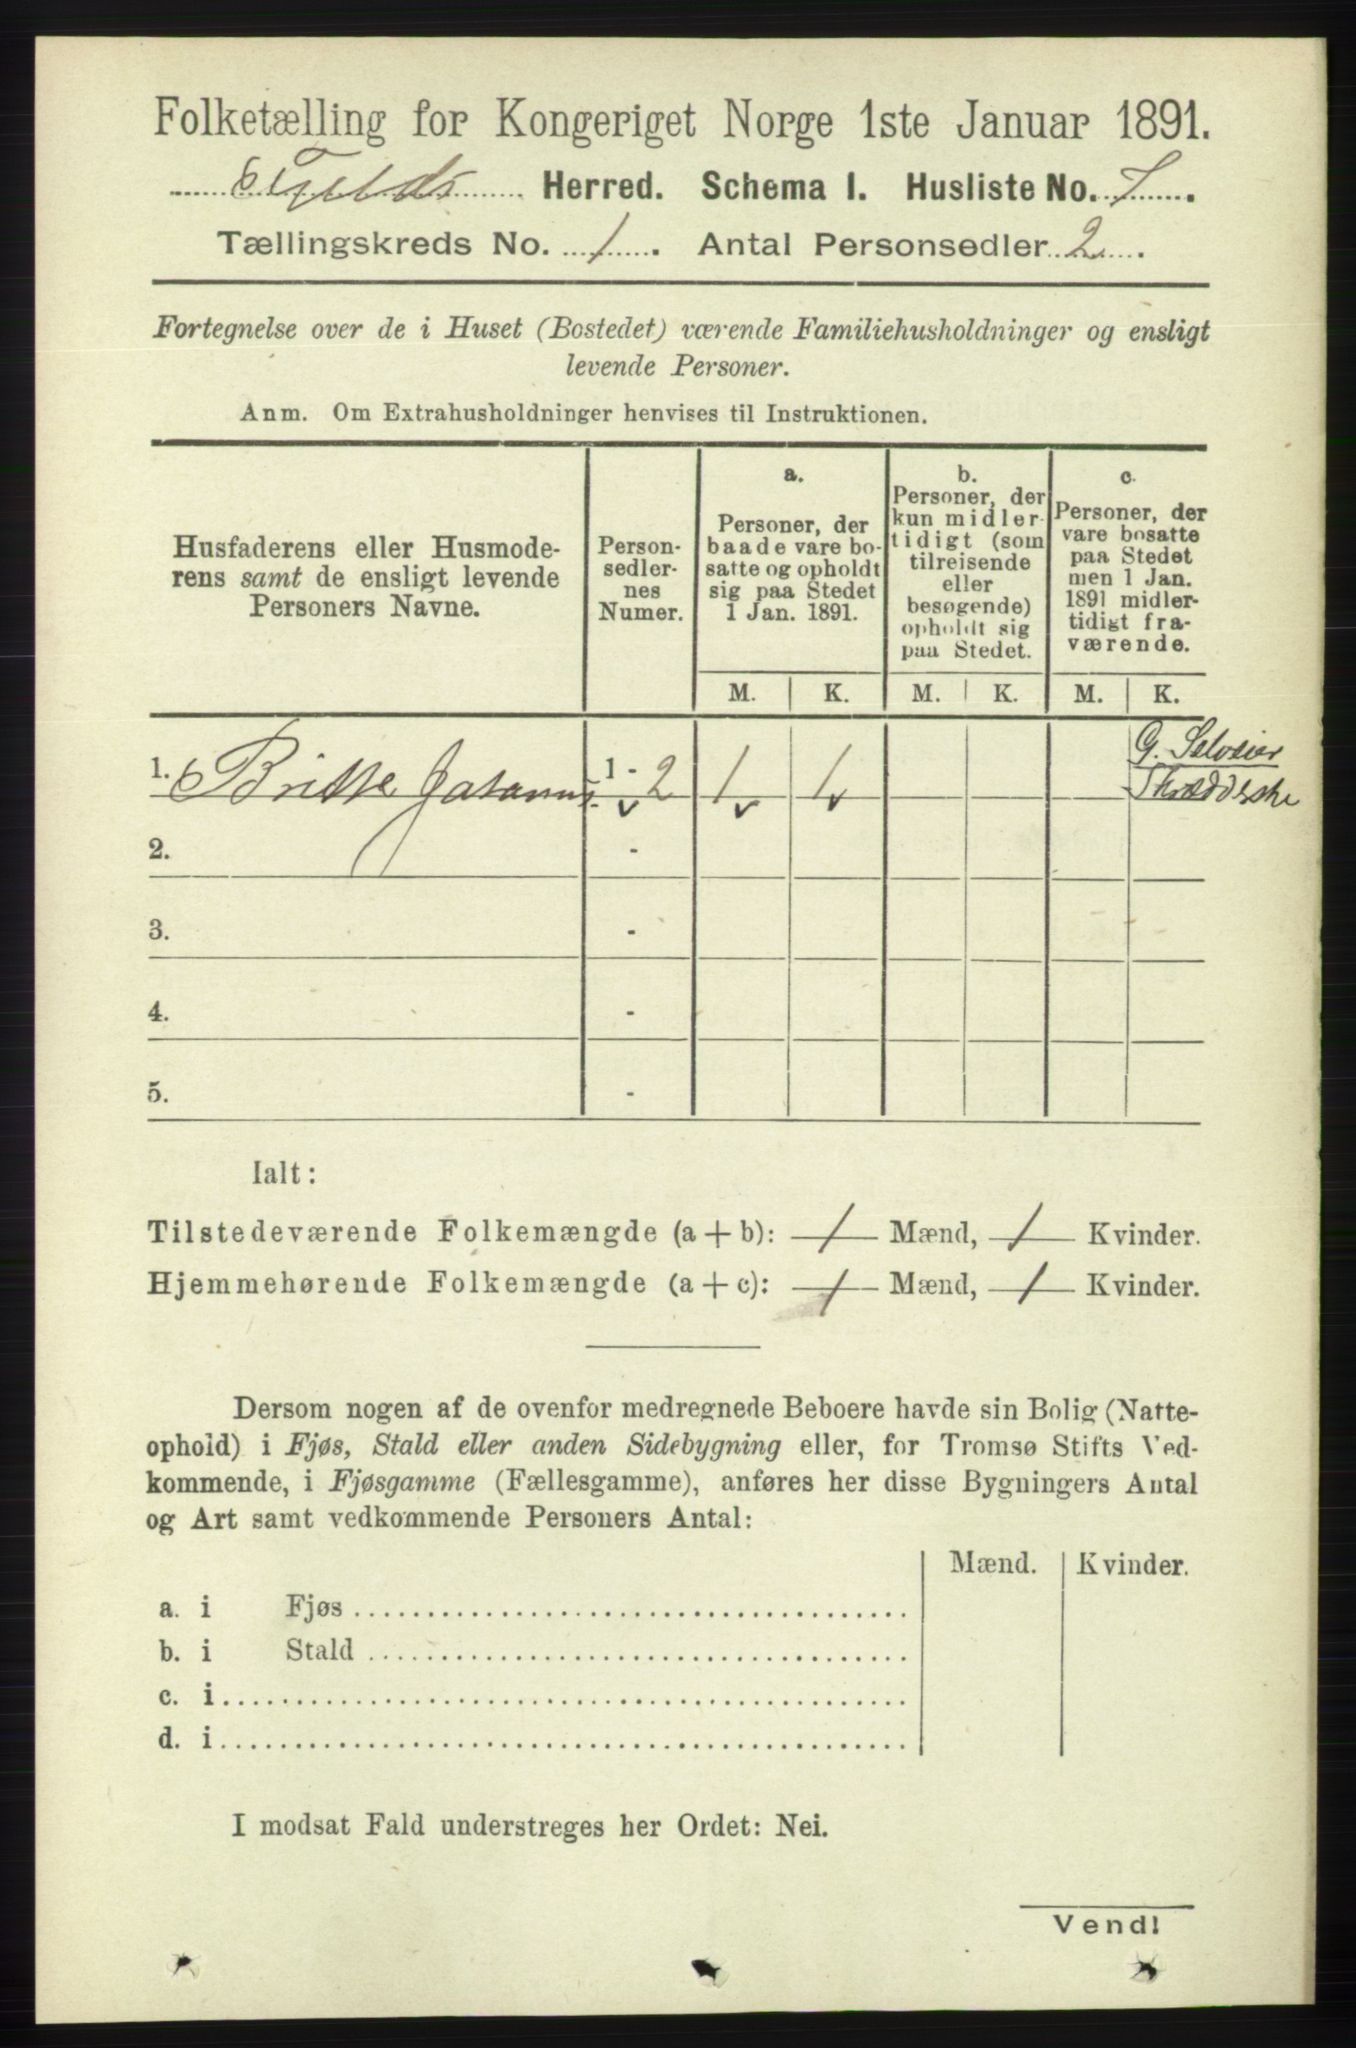 Folketælling for Kongeriget Norge 1ste Januar 1891.
Herred. Schema I. Husliste No.
Tællingskreds No. 1. Antal Personsedler 2.
Fortegnelse over de i Huset (Bostedet) værende Familiehusholdninger og ensligt
levende Personer.
Anm. Om Extrahusholdninger henvises til Instruktionen.
Husfaderens eller Husmode-
rens samt de ensligt levende
Personers Navne.
Person-
sedler-
nes
Numer.
a.
Personer, der
baade vare bo-
satte og opholdt
sig paa Stedet
1 Jan. 1891.
b.
Personer, der
kun midler-
tidigt (som
tilreisende
eller
besøgende)
opholdt sig
paa Stedet.
c.
Personer, der
vare bosatte
paa Stedet
men 1 Jan.
1891 midler-
tidigt fra-
værende.
M. K. M. K. M. K.
1. Britte 1 - 2 1 1
2. -
3. -
4. -
5. -
Ialt:
Tilstedeværende Folkemængde (a + b): 1 Mænd, 1 Kvinder.
Hjemmehørende Folkemængde (a + c): 1 Mænd, 1 Kvinder.
Dersom nogen af de ovenfor medregnede Beboere havde sin Bolig (Natte-
ophold) i Fjøs, Stald eller anden Sidebygning eller, for Tromsø Stifts Ved-
kommende, i Fjøsgamme (Fællesgamme), anføres her disse Bygningers Antal
og Art samt vedkommende Personers Antal:
Mænd. Kvinder.
a. i Fjøs
b. i Stald
c. i
d. i
I modsat Fald understreges her Ordet: Nei.
Vend!